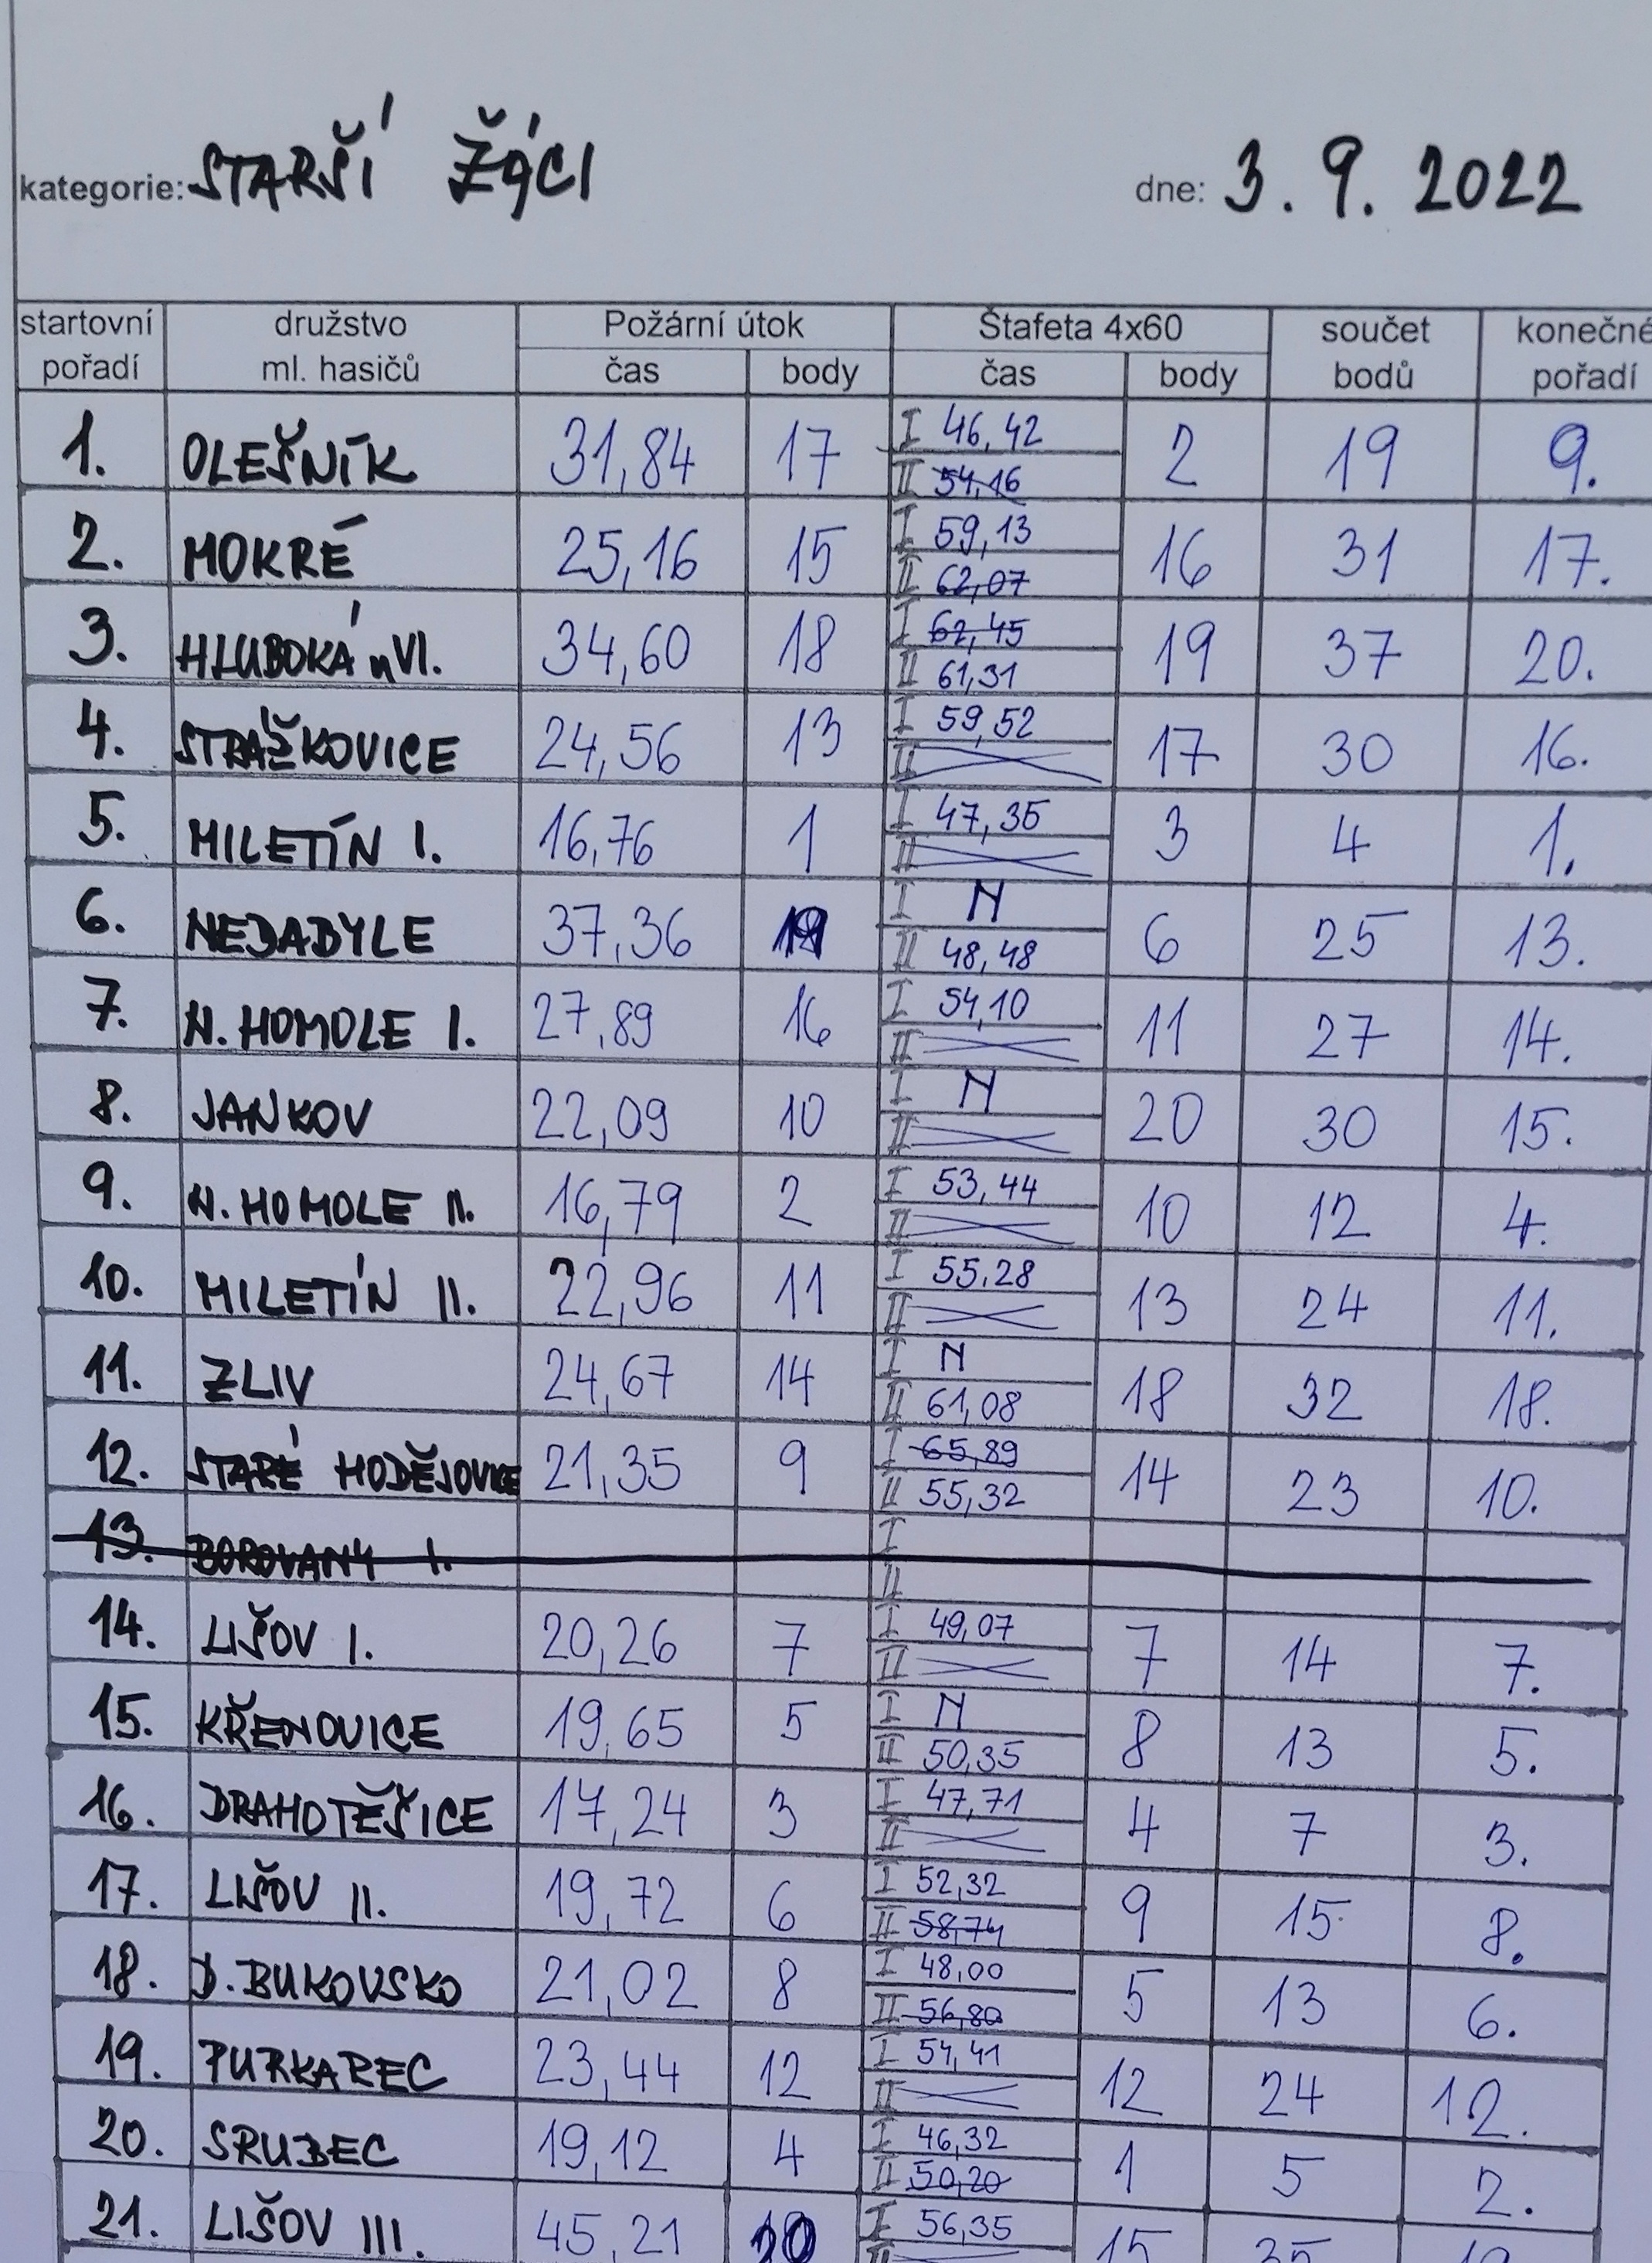 kategorie: STARŠÍ ŽÁCI dne: 3. 9. 2022
startovní pořadí družstvo ml. hasičů Požární útok čas body Štafeta 4x60 čas body součet bodů konečné pořadí
1. OLEŠNÍK 31,84 17 I 46,42 II 54,16 2 19 9.
2. MOKRÉ 25,16 15 I 59,13 II 62,07 16 31 17.
3. HLUBOKÁ n Vl. 34,60 18 I 62,45 II 61,31 19 37 20.
4. STRÁŽKOVICE 24,56 13 I 59,52 II 17 30 16.
5. MILETÍN I. 16,76 1 I 47,35 II 3 4 1.
6. NEDABYLE 37,36 19 I N II 48,48 6 25 13.
7. N. HOMOLE I. 27,89 16 I 54,10 II 11 27 14.
8. JANKOV 22,09 10 I N II 20 30 15.
9. N. HOMOLE II. 16,79 2 I 53,44 II 10 12 4.
10. MILETÍN II. 22,96 11 I 55,28 II 13 24 11.
11. ZLIV 24,67 14 I N II 61,08 18 32 18.
12. STARÉ HODĚJOVICE 21,35 9 I 65,89 II 55,32 14 23 10.
13. BOROVANY I. I II
14. LIŠOV I. 20,26 7 I 49,07 II 7 14 7.
15. KŘENOVICE 19,65 5 I N II 50,35 8 13 5.
16. DRAHOTĚŠICE 17,24 3 I 47,71 II 4 7 3.
17. LIŠOV II. 19,72 6 I 52,32 II 58,74 9 15 8.
18. D. BUKOVSKO 21,02 8 I 48,00 II 56,80 5 13 6.
19. PURKAREC 23,44 12 I 54,41 II 12 24 12.
20. SRUBEC 19,12 4 I 46,32 II 50,20 1 5 2.
21. LIŠOV III. 45,21 20 I 56,35 II 15 35